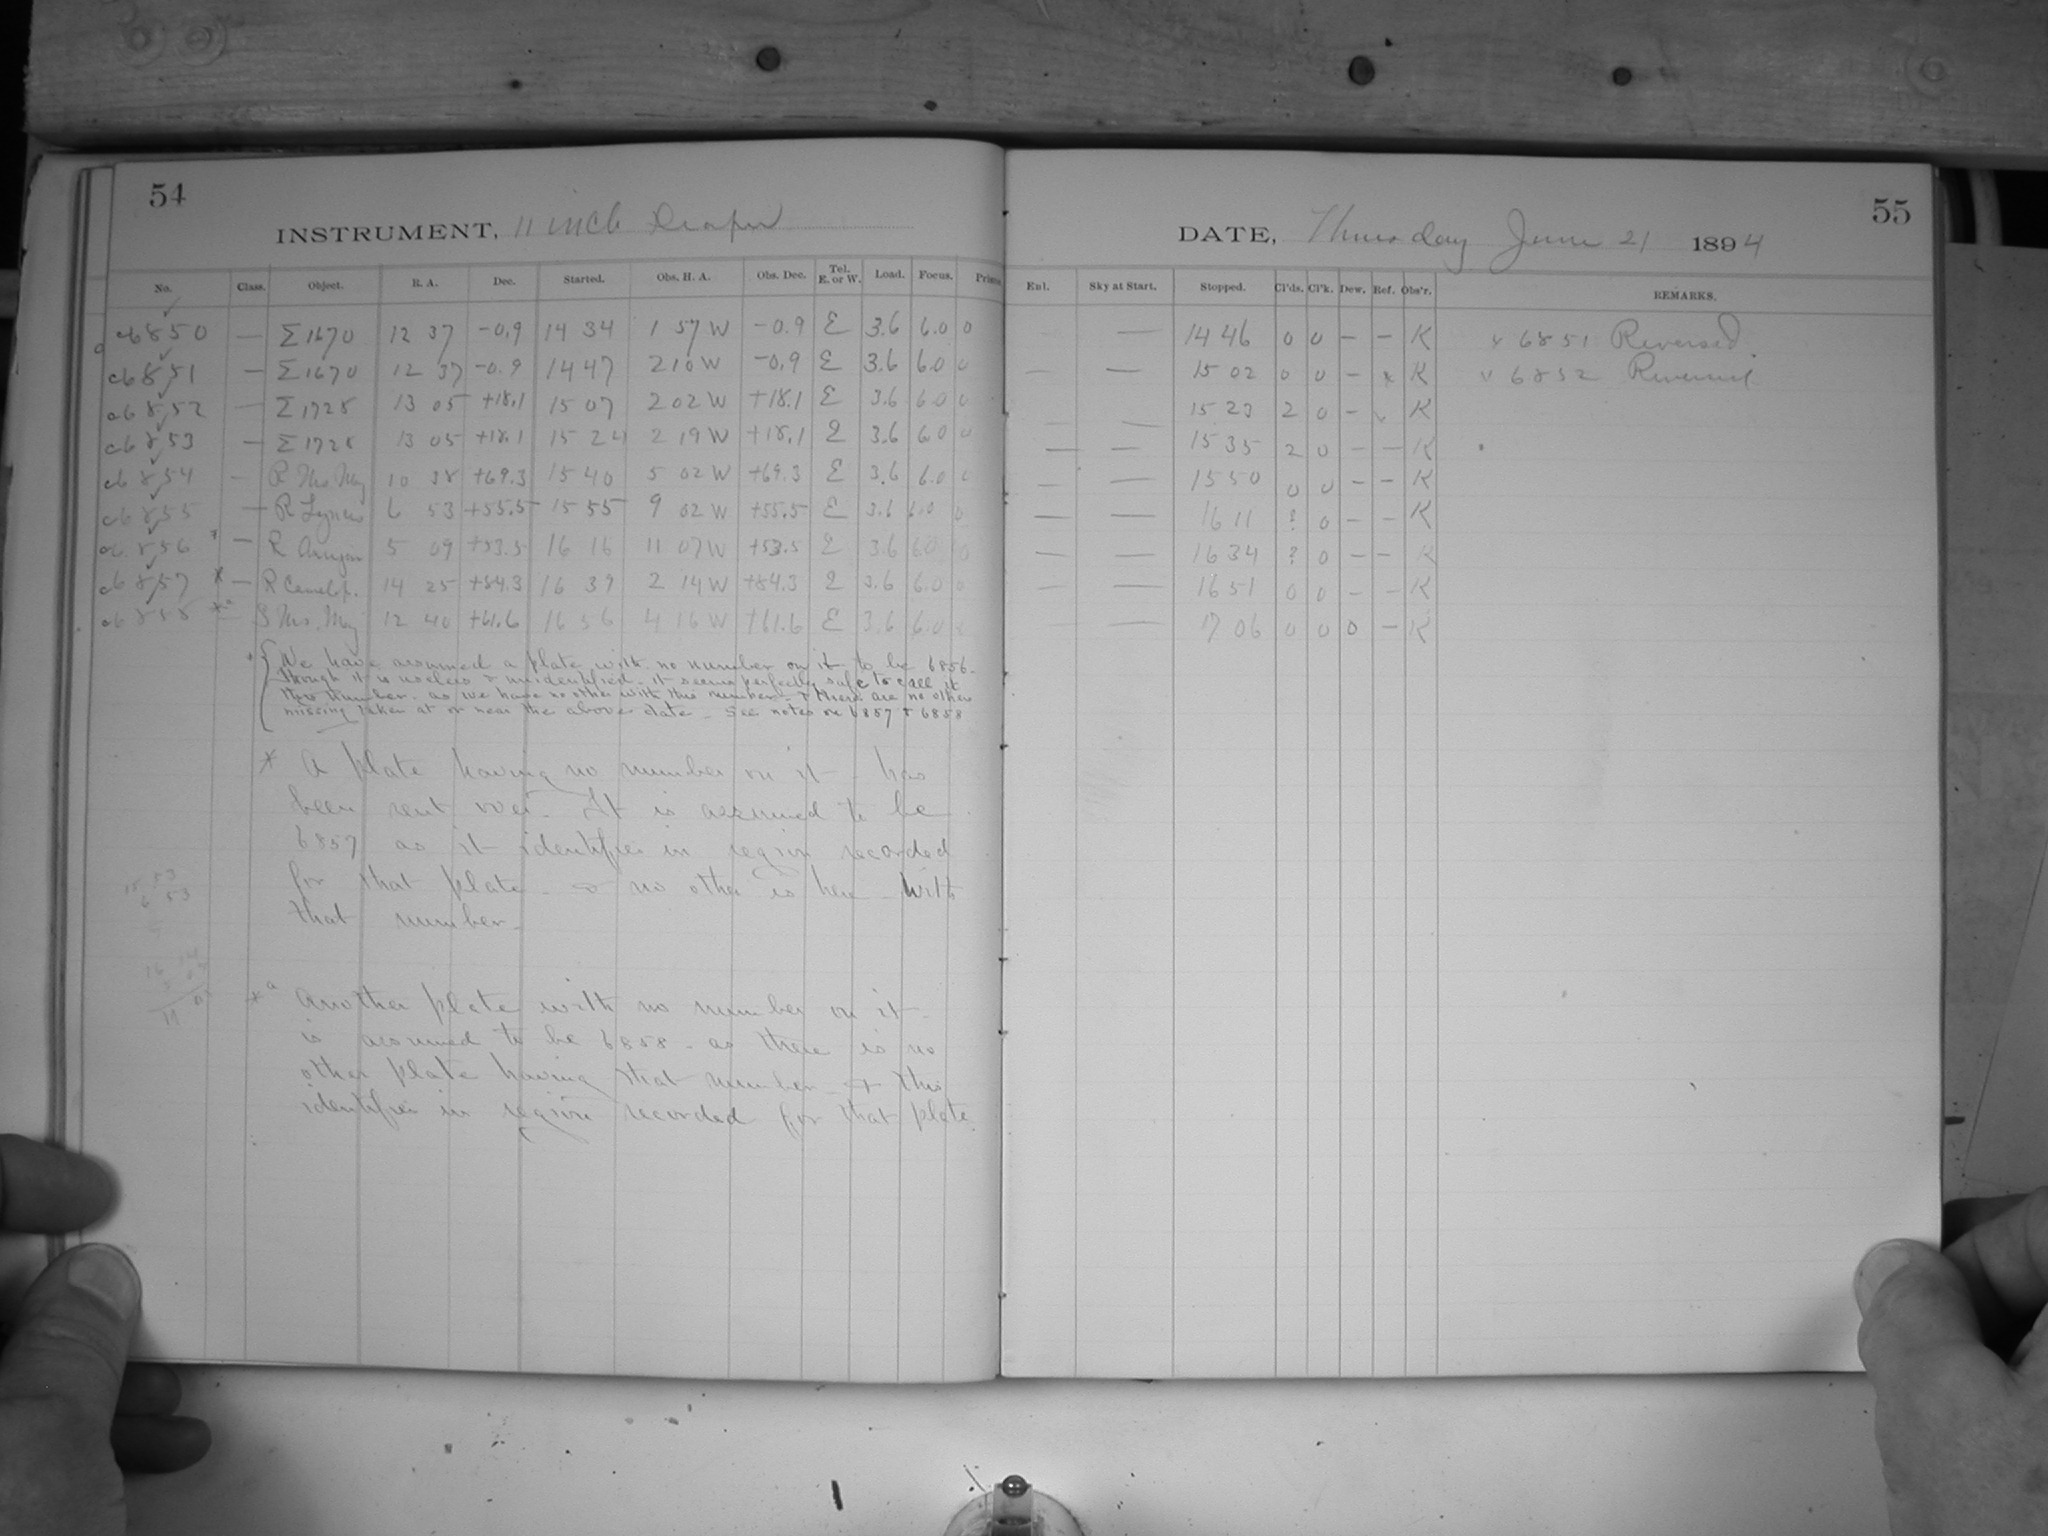 54
INSTRUMENT, 11 inch Draper
No. Class. Object. R. A. Dec. Started. Obs. H. A. Obs. Dec. Tel. E. or W. Load. Focus.
c6850 — Σ1670 12 37 -0.9 14 34 1 57 W -0.9 E 3.6 6.0 0
c6851 — Σ1670 12 37 -0.9 14 47 2 10 W -0.9 E 3.6 6.0 0
c6852 — Σ1728 13 05 +18.1 15 07 2 02 W +18.1 E 3.6 6.0 0
c6853 — Σ1728 13 05 +18.1 15 24 2 19 W +18.1 E 3.6 6.0 0
c6854 — R Urs. Maj 10 38 +69.3 15 40 5 02 W +69.3 E 3.6 6.0 0
c6855 — R Lyncis 6 53 +55.5 15 55 9 02 W +55.5 E 3.6 6.0 0
c6856 — R Aurigae 5 09 +53.5 16 16 11 07 W +53.5 E 3.6 6.0 0
c6857 * — R Camelop. 14 25 +84.3 16 39 2 14 W +84.3 E 3.6 6.0 0
c6858 *a — S Urs. Maj 12 40 +61.6 16 56 4 16 W +61.6 E 3.6 6.0
We have assumed a plate with no number on it to be 6856-
though it is useless & unidentified - it seems perfectly safe to call it
this number. as we have no other with this number - & there are no other
missing taken at or near the above date - See notes on 6857 & 6858
* A plate having no number on it - has
been sent over. It is assumed to be
6857 as it identifies in region recorded
for that plate - & no other is here - with
that number -
*a Another plate with no number on it -
is assumed to be 6858 - as there is no
other plate having that number - & this
identifies in region recorded for that plate
15 53
6 53
55
DATE, Thursday June 21 1894
Enl. Sky at Start. Stopped. Cl'ds. Cl'k. Dew. Ref. Obs'r. REMARKS.
— 14 46 0 0 — — K x 6851 Reversed.
— — 15 02 0 0 — x K v 6852 Reversed
— — 15 23 2 0 — v K
— — 15 35 2 0 — — K
— — 15 50 0 0 — — K
— — 16 11 ? 0 — — K
— — 16 34 ? 0 — — K
— — 16 51 0 0 — — K
— — 17 06 0 0 0 — K